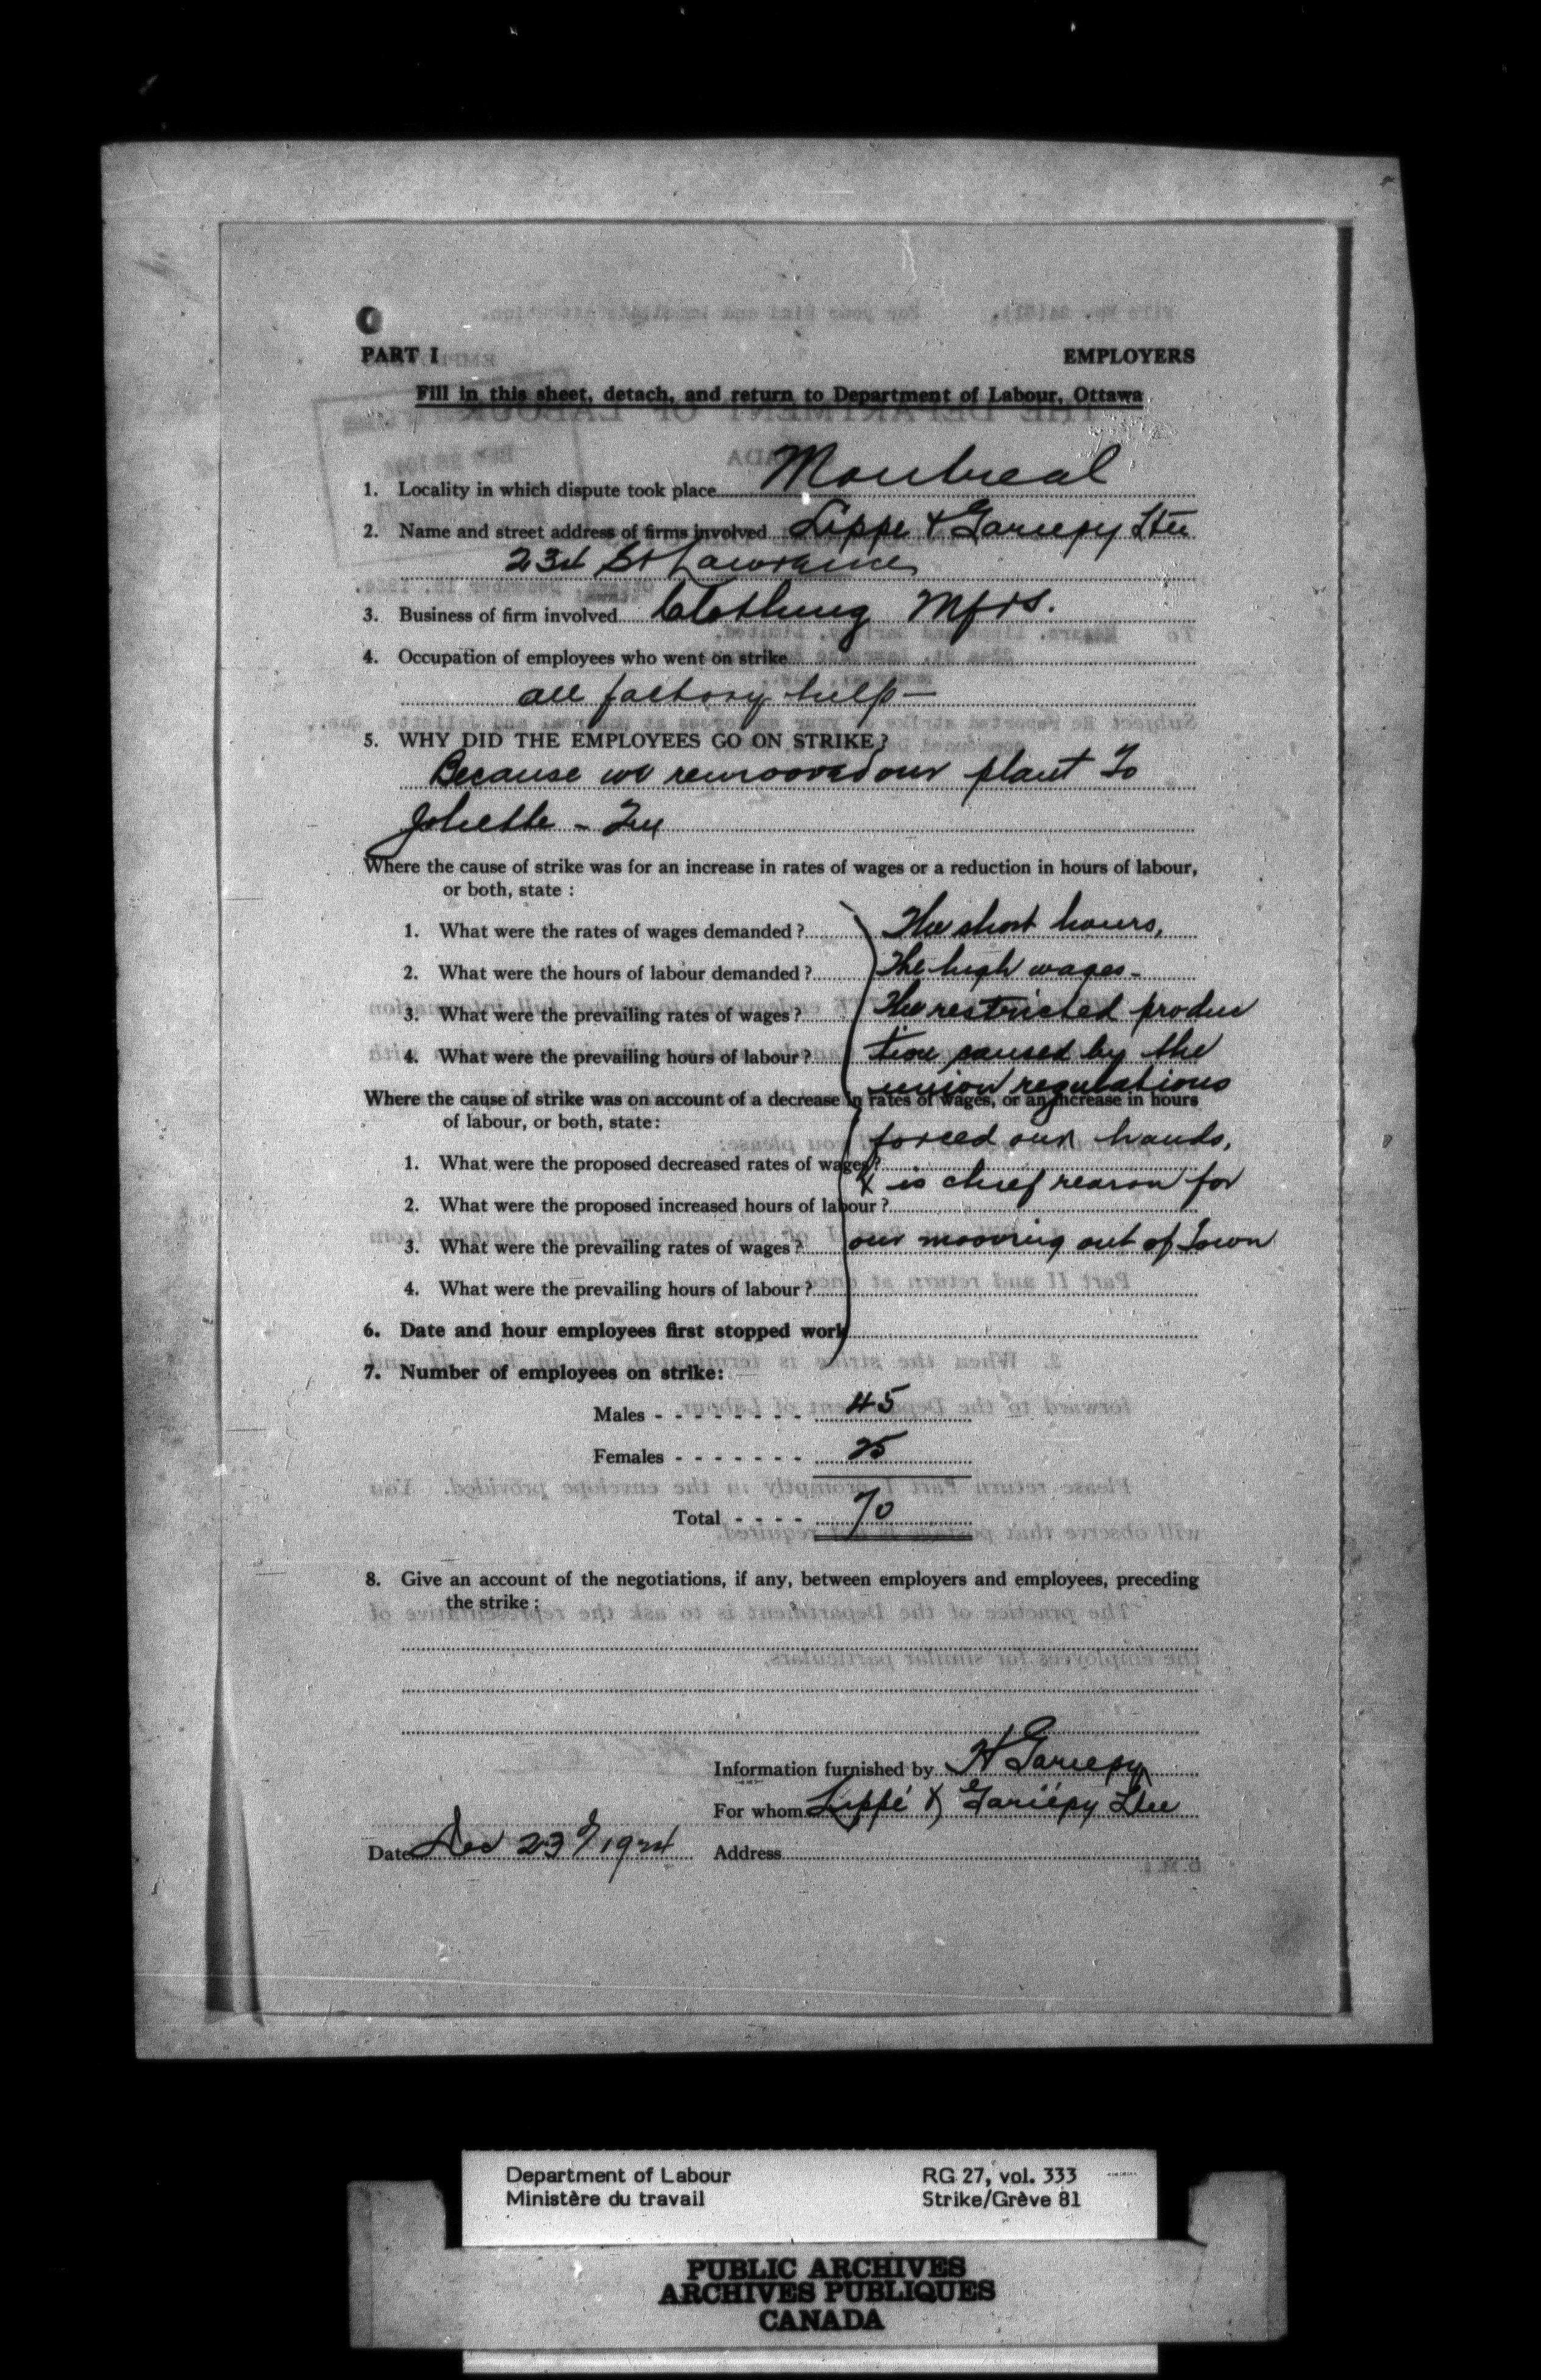 PART I EMPLOYERS
Fill in this sheet, detach, and return to Department of Labour, Ottawa
1. Locality in which dispute took place Montreal
2. Name and street address of firms involved Lippe & Gariepy Ltee
234 St Lawrence
3. Business of firm involved Clothing Mfrs.
4. Occupation of employees who went on strike
all factory help —
5. WHY DID THE EMPLOYEES GO ON STRIKE?
Because we remooved our plant To
Joliette - Que
Where the cause of strike was for an increase in rates of wages or a reduction in hours of labour,
or both, state :
1. What were the rates of wages demanded ? The short hours,
2. What were the hours of labour demanded ? The high wages -
3. What were the prevailing rates of wages ? The restricted produc
4. What were the prevailing hours of labour ? tion caused by the
union regulations
Where the cause of strike was on account of a decrease in rates of wages, or an increase in hours
of labour, or both, state: forced our hands,
1. What were the proposed decreased rates of wages ?
& is chief reason for
2. What were the proposed increased hours of labour ?
3. What were the prevailing rates of wages ? our mooving out of Town
4. What were the prevailing hours of labour ?
6. Date and hour employees first stopped work
7. Number of employees on strike:
Males - - - - - - - - 45
Females - - - - - - - 25
Total - - - - 70
8. Give an account of the negotiations, if any, between employers and employees, preceding
the strike :
Information furnished by H Gariepy
For whom Lippé & Gariépy Ltee
Date Dec 23d/1924 Address
Department of Labour RG 27, vol. 333
Ministère du travail Strike/Grève 81
PUBLIC ARCHIVES
ARCHIVES PUBLIQUES
CANADA